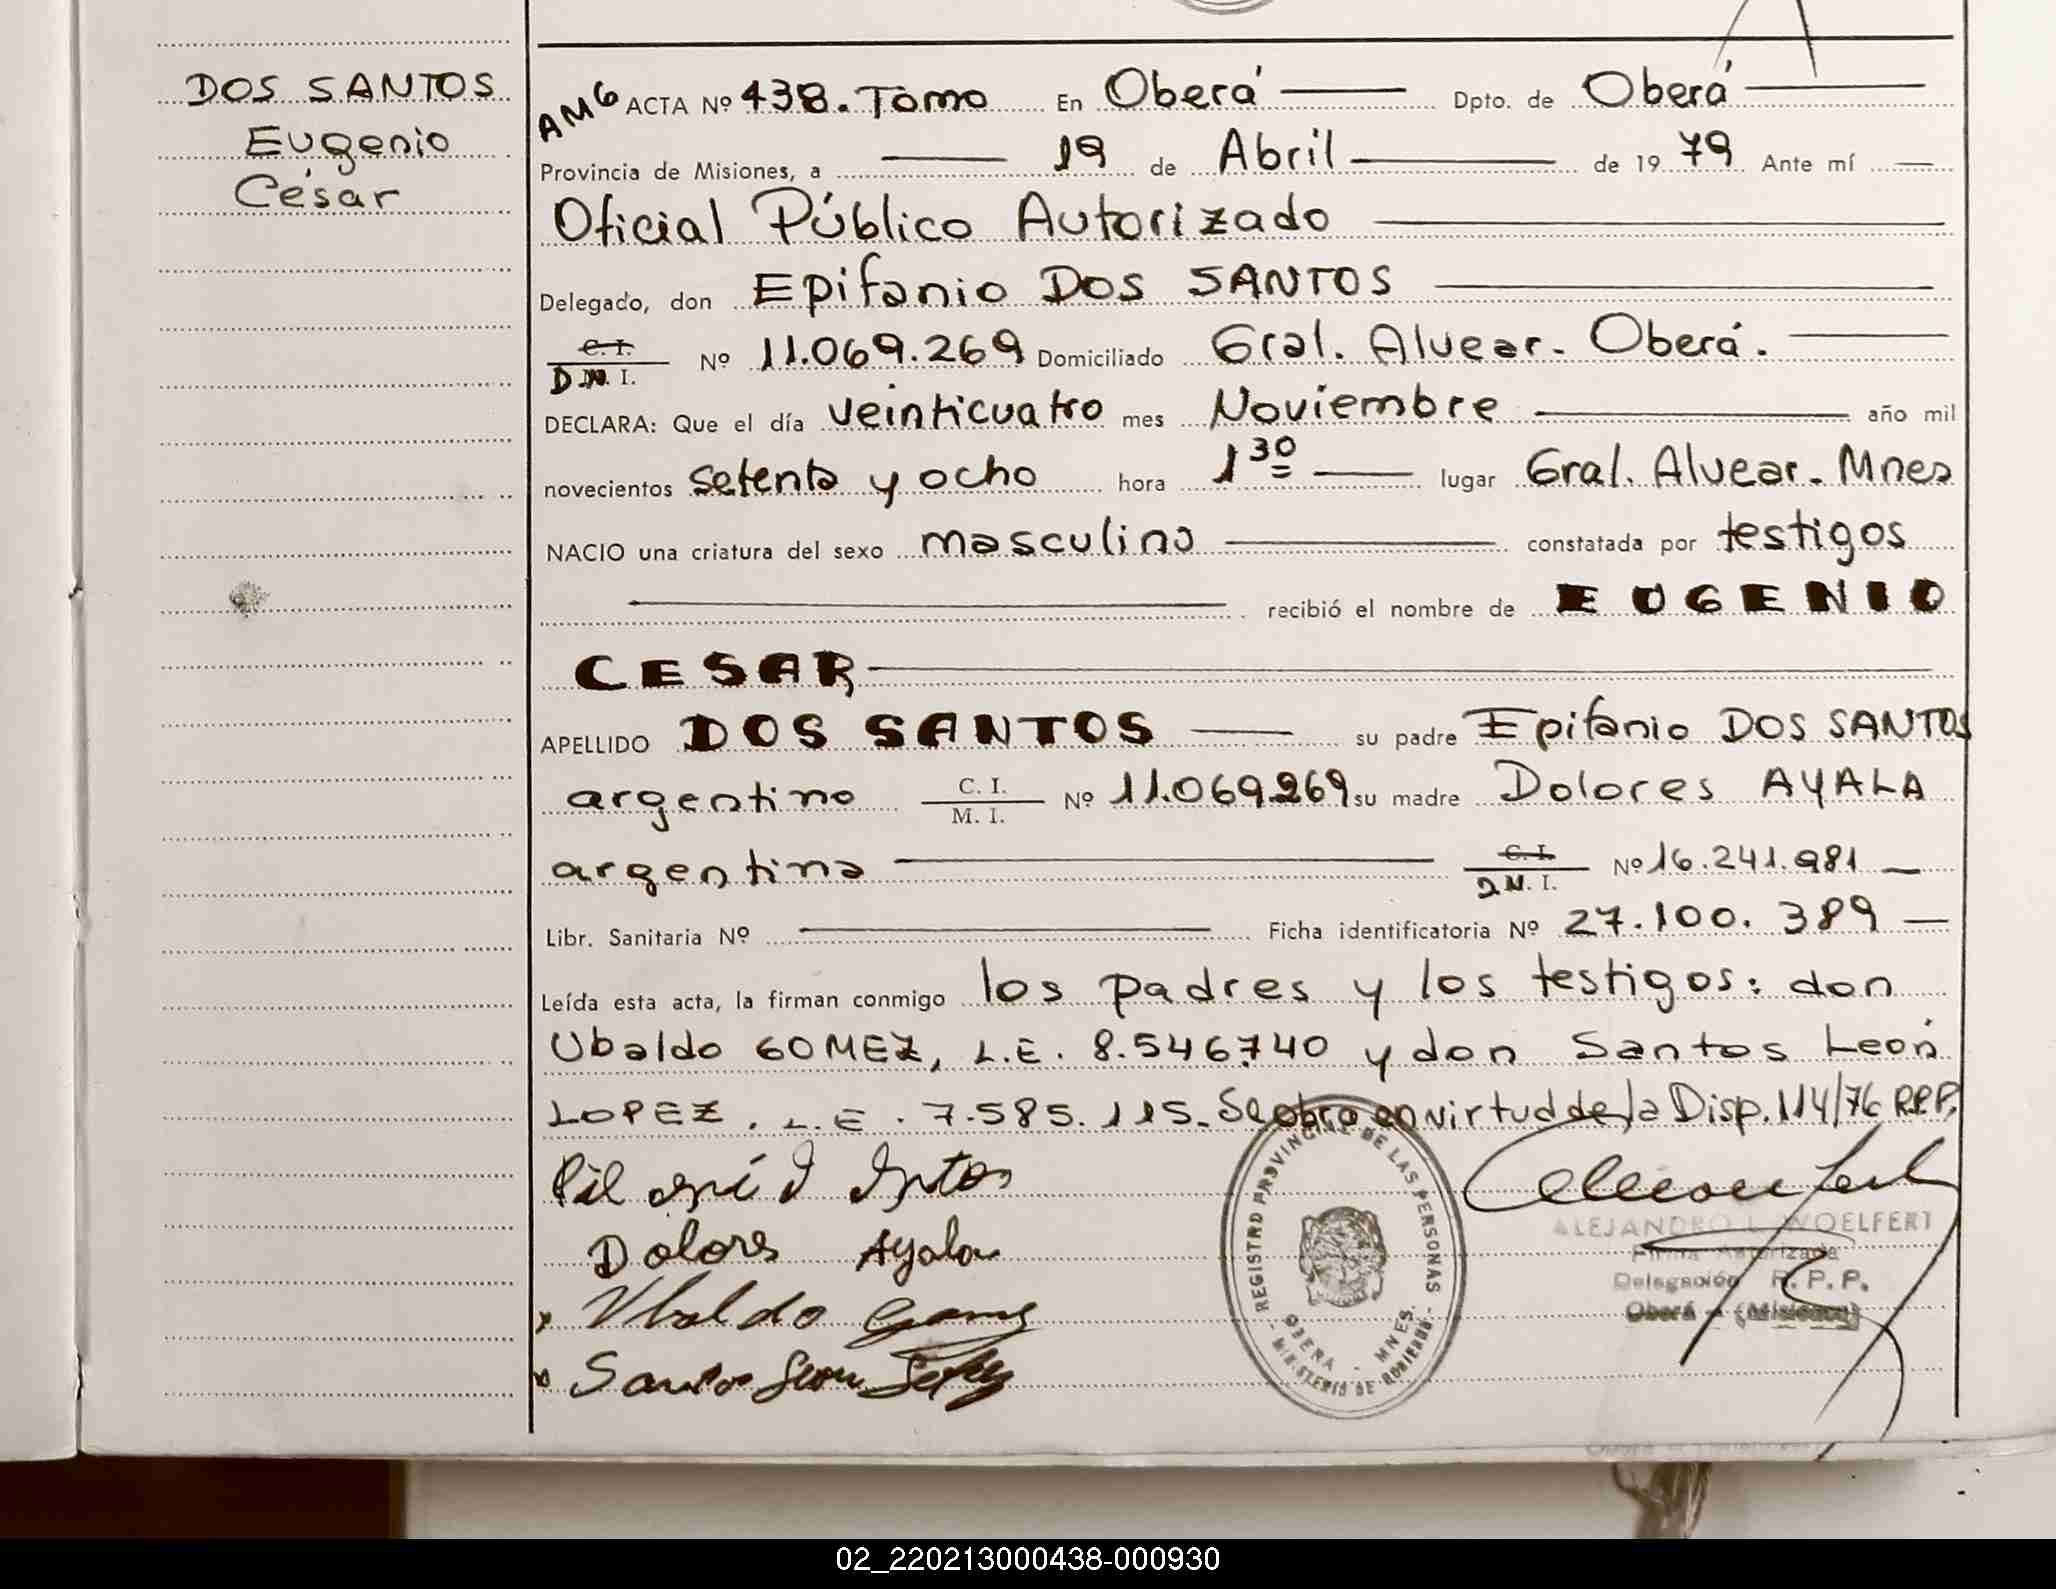 DOS SANTOS
Eugenio
César
AMG ACTA Nº 438. Tomo En Oberá Dpto. de Oberá
Provincia de Misiones, a 19 de Abril de 1979 Ante mí
Oficial Público Autorizado
Delegado, don Epifanio DOS SANTOS
C. I.
D.N. I. Nº 11.069.269 Domiciliado Gral. Alvear. Oberá.
DECLARA: Que el día veinticuatro mes Noviembre año mil
novecientos setenta y ocho hora 1 30 lugar Gral. Alvear. Mnes
NACIO una criatura del sexo masculino constatada por testigos
recibió el nombre de EUGENIO
CESAR
APELLIDO DOS SANTOS su padre Epifanio DOS SANTOS
argentino C. I. M. I. Nº 11.069269 su madre Dolores AYALA
argentina C. I. D.N. I. Nº 16.241.981
Libr. Sanitaria Nº Ficha identificatoria Nº 27.100.389
Leída esta acta, la firman conmigo los padres y los testigos: don
Ubaldo GOMEZ, L.E. 8.546.740 y don Santos León
LOPEZ. L.E. 7.585.115. Se obro en virtud de la Disp. 114/76 R.P.P.
Dolores Ayala
Ubaldo Gomez
Santos Leon
REGISTRO PROVINCIAL DE LAS PERSONAS
OBERA - MNES.
- MINISTERIO DE GOBIERNO -
ALEJANDRO L. WOELFERT
Firma Autorizada
Delegación R. P. P.
Oberá - (Misiones)
02_220213000438-000930